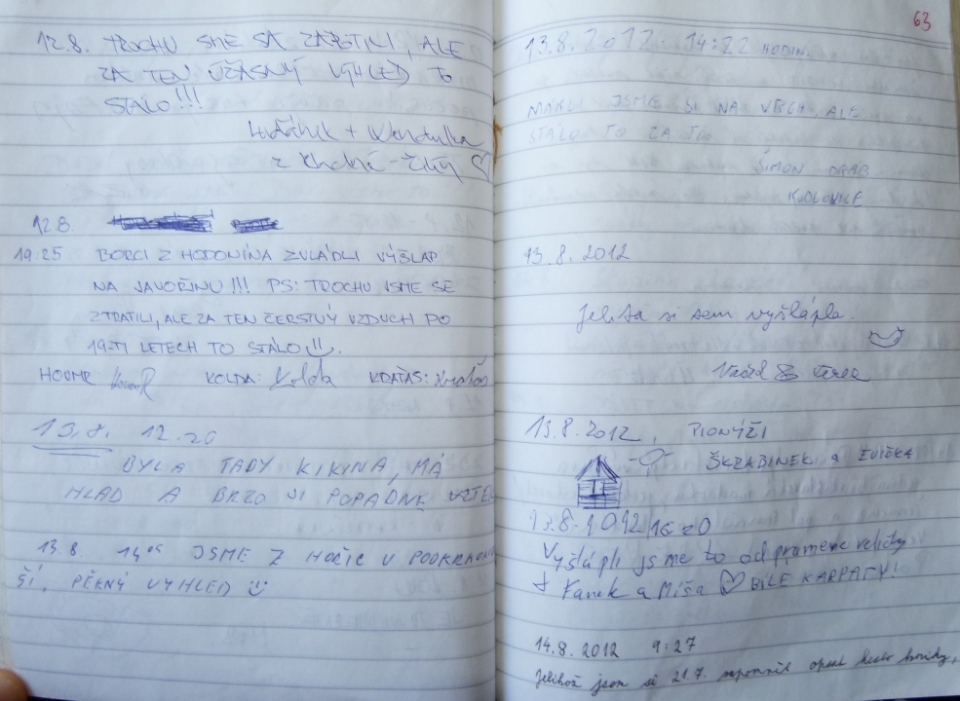 12.8. TROCHU SME SA ZARTILI, ALE
ZA TEN ÚŽASNÝ VÝHLED TO
STÁLO!!!
+
z
12.8.
19:25 BORCI Z HODONÍNA ZVLÁDLI VÝŠLAP
NA JAVOŘINU!!! PS: TROCHU JSME SE
ZTRATILI, ALE ZA TEN ČERSTVÝ VZDUCH PO
19-TI LETECH TO STÁLO!!
KOLDA: Kolda
13.8. 12.20
BYLA TADY KIKINA, MÁ
HLAD A BRZO JI POPADNE VZTEK
13.8. 14 JSME Z HOŘIC V PODKRKONO
ŠÍ. PĚKNÝ VÝHLED
63
13.8.2012 14:22 HODIN.
MÁKLI JSME SI NA VRCH, ALE
STÁLO TO ZA TO
ŠIMON
13.8.2012
si sem vyšlápla.
13.8.2012, PIONÝŽI
ŠKRABINEK a EVIČKA
13.8.2012 16:20
Vyšlápli jsme to od pramene veličky
a Míša BÍLÉ KARPATY!
14.8.2012 9:27
Jelikož jsem si 21.7. zapomněl opsat